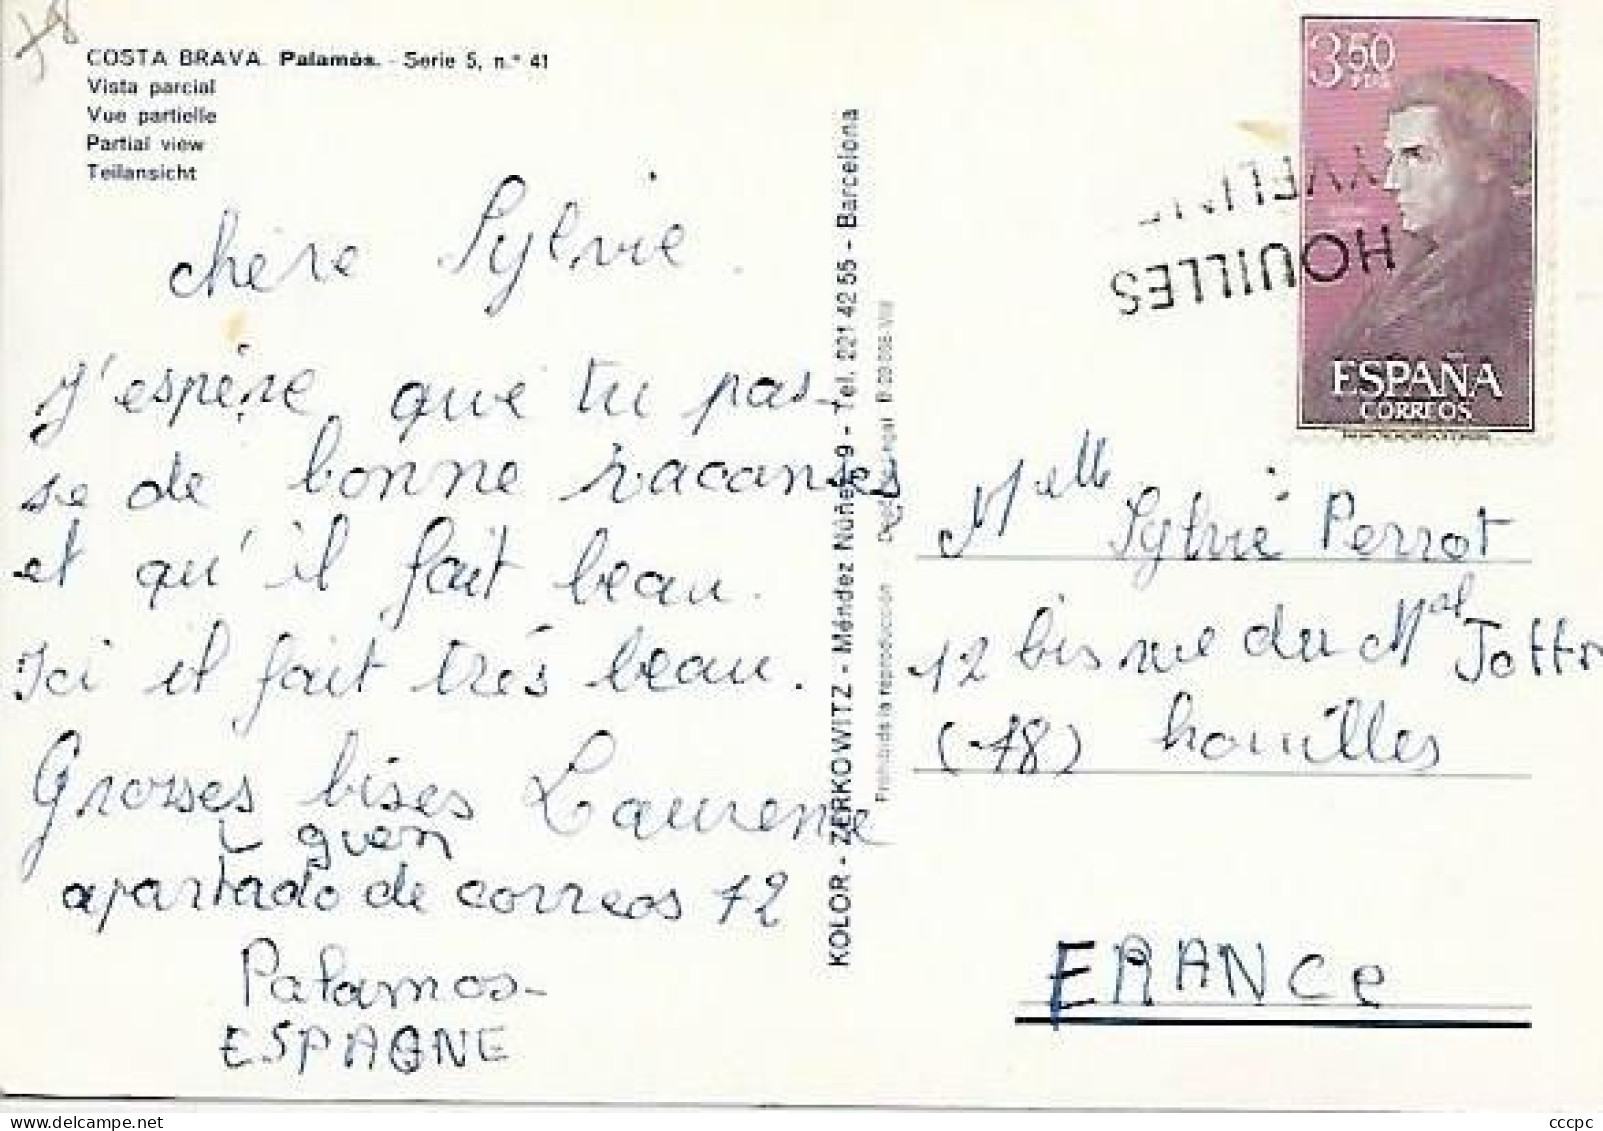 78
COSTA BRAVA. Palamós. - Serie 5, n.° 41
Vista parcial
Vue partielle
Partial view
Teilansicht
chère Sylvie.
J'espère que tu pas-
se de bonne vacances
et qu'il fait beau.
Ici il fait très beau.
Grosses bises Laurence
guen
apartado de correos 12
Palamos-
ESPAGNE
KOLOR - ZERKOWITZ - Méndez Núñez, 9 - Tel. 221 42 55 - Barcelona
Prohibida la reproducción
3,50
PTA
ESPAÑA
CORREOS
HOUILLES
YVELINES
Melle Sylvie Perrot
12 bis rue du Mal Joffr
(78) houilles
FRANCE
cccpc